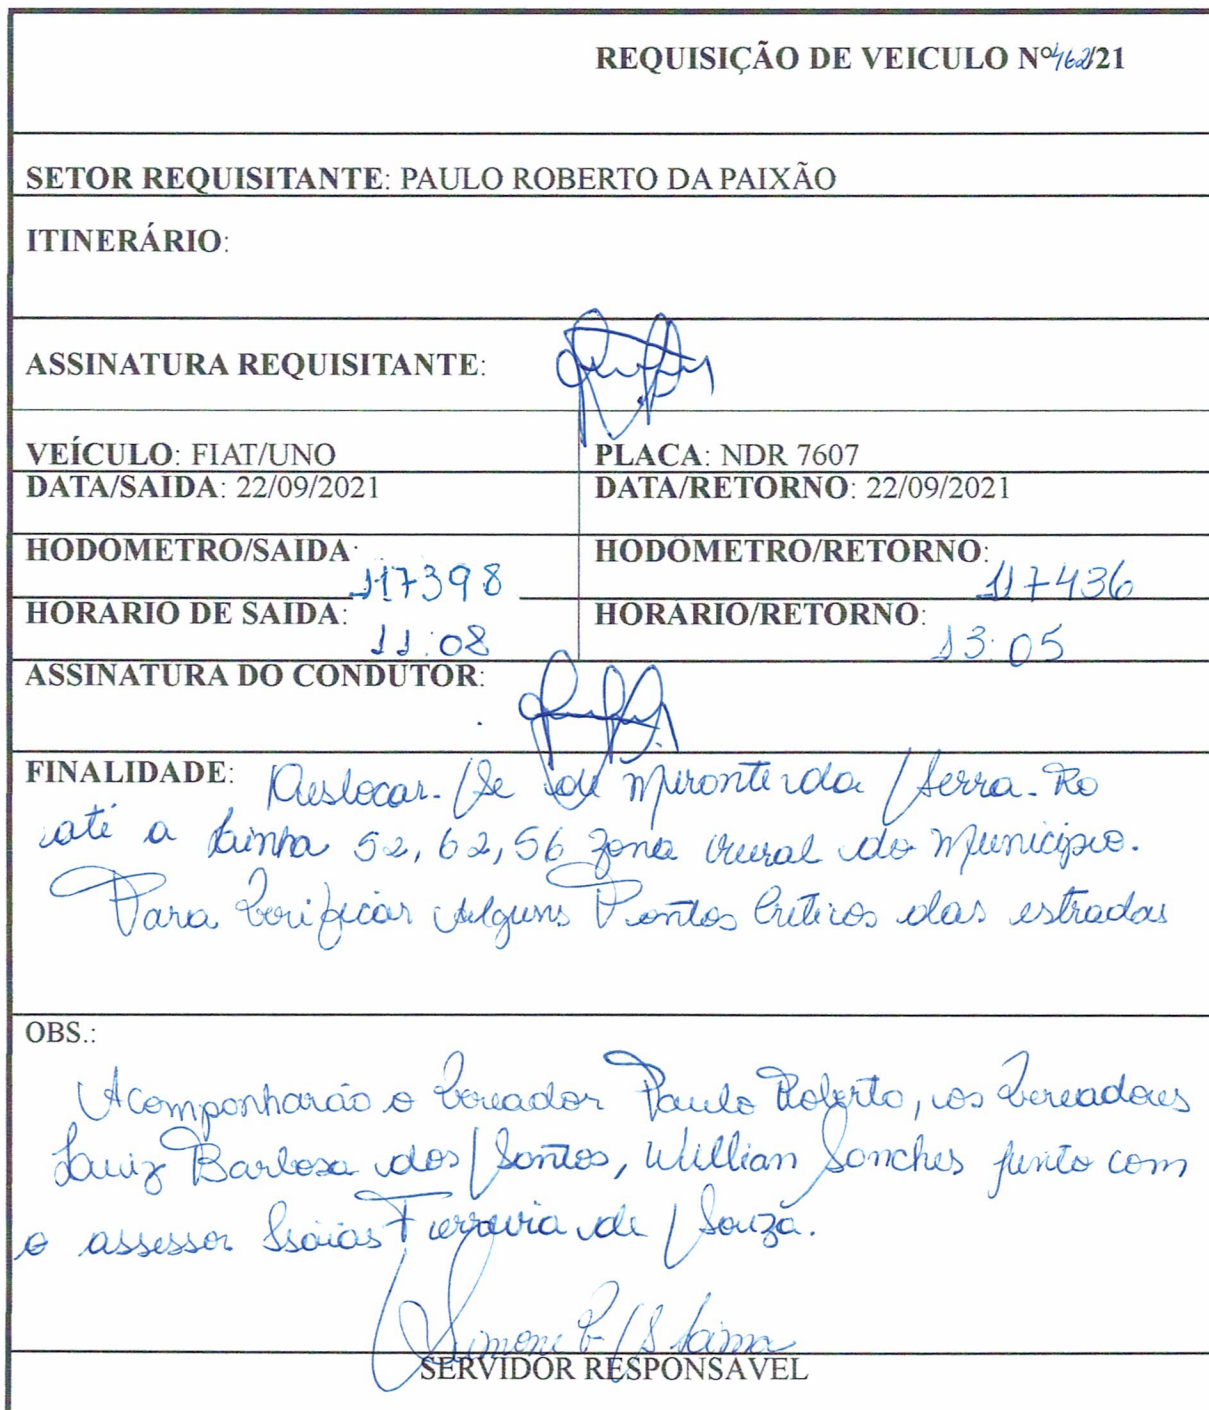 REQUISIÇÃO DE VEICULO Nº462/21
SETOR REQUISITANTE: PAULO ROBERTO DA PAIXÃO
ITINERÁRIO:
ASSINATURA REQUISITANTE:
VEÍCULO: FIAT/UNO PLACA: NDR 7607
DATA/SAIDA: 22/09/2021 DATA/RETORNO: 22/09/2021
HODOMETRO/SAIDA: 117398 HODOMETRO/RETORNO: 117436
HORARIO DE SAIDA: 11:08 HORARIO/RETORNO: 13:05
ASSINATURA DO CONDUTOR:
FINALIDADE: Deslocar-Se de Mirante da Serra-Ro
até a Linha 52, 62, 56 zona rural do Município.
Para Verificar Alguns Pontos Criticos das estradas
OBS.:
Acompanharão o Vereador Paulo Roberto, os Vereadores
Luiz Barbosa dos Santos, Willian Sanches junto com
o assessor Isaias Ferreira de Souza.
Simone
SERVIDOR RESPONSAVEL